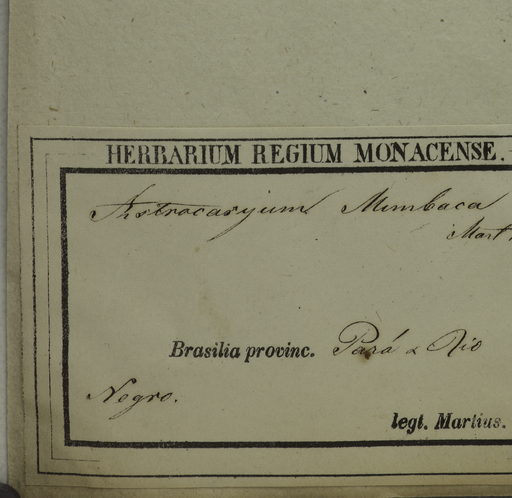 HERBARIUM REGIUM MONACENSE.
Astrocaryum Mumbaca
Mart.
Brasilia provinc. Pará & Rio
Negro.
legt. Martius.